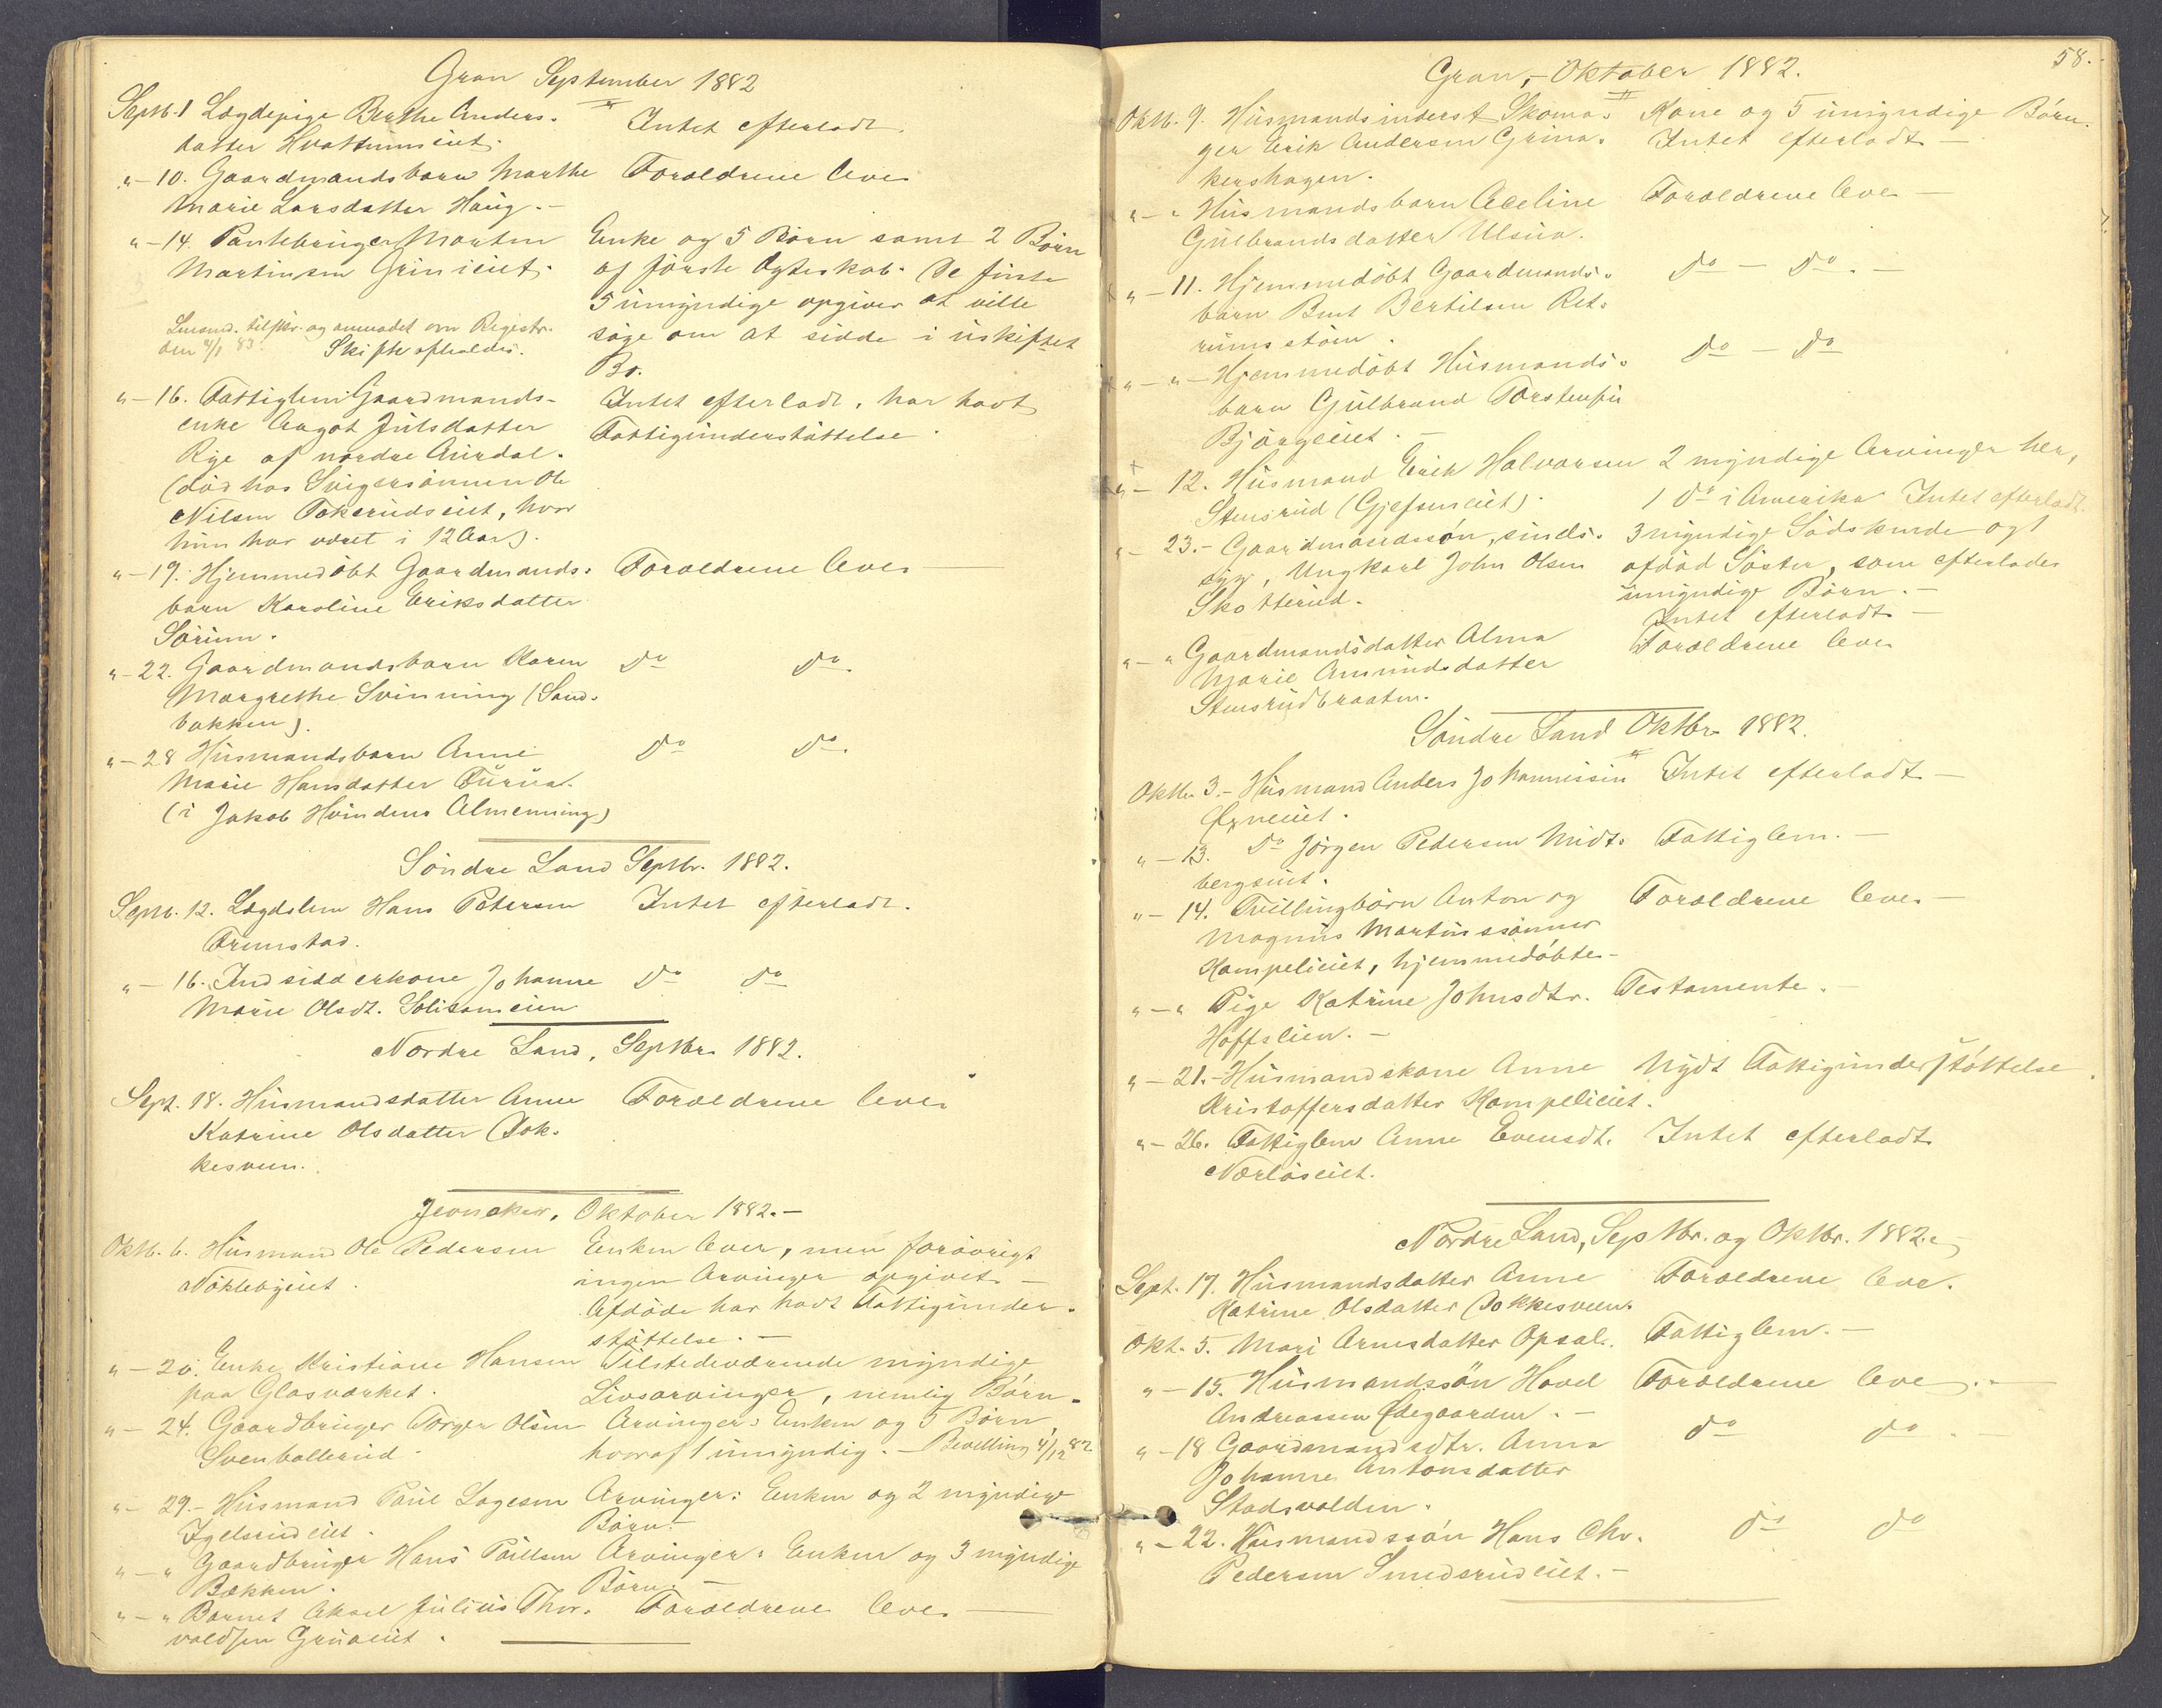 Gran September 1882
Septb. 1 Lægdepige Berthe Anders-
datter Hvattumseiet.
Intet efterladt.
"-10. Gaardmandsbarn Marthe
Marie Larsdatter Haug.-
Forældrene leve
"-14. Pantebruger Morten
Martinsen Griniciet.
Enke og 5 Børn samt 2 Børn
af første Ægteskab. De første
5 umyndige opgives at ville
søge om at sidde i uskiftet
Bo.
Lensmd. tilskr. og anmodet om Registr.
den 4/1 83. Skifte afholdes.
"-16. Fattiglem Gaardmands-
enke Aagot Julsdatter
Rye af nordre Aurdal.
(død hos Svigersønnen Ole
Nilsen Tokerudseiet, hvor
hun har været i 12 Aar).
Intet efterladt, har havt
Fattigunderstøttelse.
"-19. Hjemmedøbt Gaardmands-
barn Karoline Eriksdatter
Sørum.
Forældrene leve
"-22. Gaardmandsbarn Karen
Margrethe Svinning (Sand-
bakken).
Do Do.
"-28 Husmandsbarn Anne
Marie Hansdatter Furua.
(i Jakob Hvindens Almenning)
Do Do.
Søndre Land Septbr. 1882.
Septb. 12. Lægdslem Hans Petersen
Framstad.
Intet efterladt.
"-16. Indsidderkone Johanne
Marie Olsdt.
Do Do
Nordre Land, Septbr. 1882.
Sept. 18. Husmandsdatter Anne
Katrine Olsdatter Dok-
kesveen.
Forældrene leve
Jevnaker, Oktober 1882.-
Oktb. 6. Husmand Ole Pedersen
Nøklebyeiet.
Enken lever, men forøvrigt
ingen Arvinger opgivet.-
Afdøde har havt Fattigunder-
støttelse.-
"-20. Enke Kristiane Hansen
paa Glasværket.
Tilstedeværende myndige
Livsarvinger, nemlig Børn.
"-24. Gaardbruger Torger Olsen
Svenballerud.
Arvinger: Enken og 5 Børn,
hvoraf 1 umyndig.- Bevilling 4/12 82.
"-29.- Husmand Paul Lagesen
Igelsrudeiet.
Arvinger: Enken og 2 myndige
Børn.-
"-" Gaardbruger Hans Paulsen
Bækken.
Arvinger: Enken og 3 myndige
Børn.-
"-" Barnet Aksel Julius Thor-
valdsen Gruaeiet.
Forældrene leve
58.
Gran,- Oktober 1882.
Oktb. 9. Husmandsinderst Skoma-
ger Erik Andersen Grina-
kershagen.
Kone og 5 umyndige Børn.
Intet efterladt-
"-" Husmandsbarn Aceline
Gulbrandsdatter Ulsua.
Forældrene leve-
"-11. Hjemmedøbt Gaardmands-
barn Bent Bertilsen Ret-
rumsstøen.
Do - Do.-
"-"- Hjemmedøbt Husmands-
barn Gulbrand Torstensen
Bjørgeeiet.-
Do - Do
"- 12. Husmand Erik Halvorsen
Stensrud (Gjefseneiet).
2 myndige Arvinger her,
1 Do i Amerika Intet efterladt.
"- 23.- Gaardmandssøn, sinds-
syg, Ungkarl John Olsen
Skotterud.
3 myndige Sødskende og 1
afdød Søster, som efterlader
umyndige Børn.-
Intet efterladt-
"-" Gaardmandsdatter Alma
Marie Amundsdatter
Stensrudbraaten.
Forældrene leve
Søndre Land Oktbr. 1882.
Oktbr 3.- Husmand Anders Johannissen
Øxneiet.
Intet efterladt-
"-13. Do Jørgen Pedersen Midt-
bergseiet.
Fattiglem.-
"-14. Tvillingbørn Anton og
Magnus Martinssønner
Kompelieiet, hjemmedøbte-
Forældrene leve-
"-" Pige Katrine Johnsdtr.
Hoffslien.-
Testamente.-
"-21.- Husmandskone Anne
Kristoffersdatter Kompelieiet.
Nydt Fattigunderstøttelse.
"-26. Fattiglem Anne Evensdt.
Nerlaseiet.
Intet efterladt
Nordre Land, Septbr. og Oktbr. 1882.
Sept. 17. Husmandsdatter Anne
Katrine Olsdatter Dokkesveen.
Forældrene leve.
Okt. 5. Mari Arnesdatter Opsal.
Fattiglem.-
"-15. Husmandssøn Hovel
Andreassen Ødegaarden.-
Forældrene leve.-
"-18 Gaardmandsdtr. Anna
Johanne Antonsdatter
Stadsvolden.
Do Do.-
"-22. Husmandssøn Hans Chr.
Pedersen Smedsrudeiet.-
Do Do